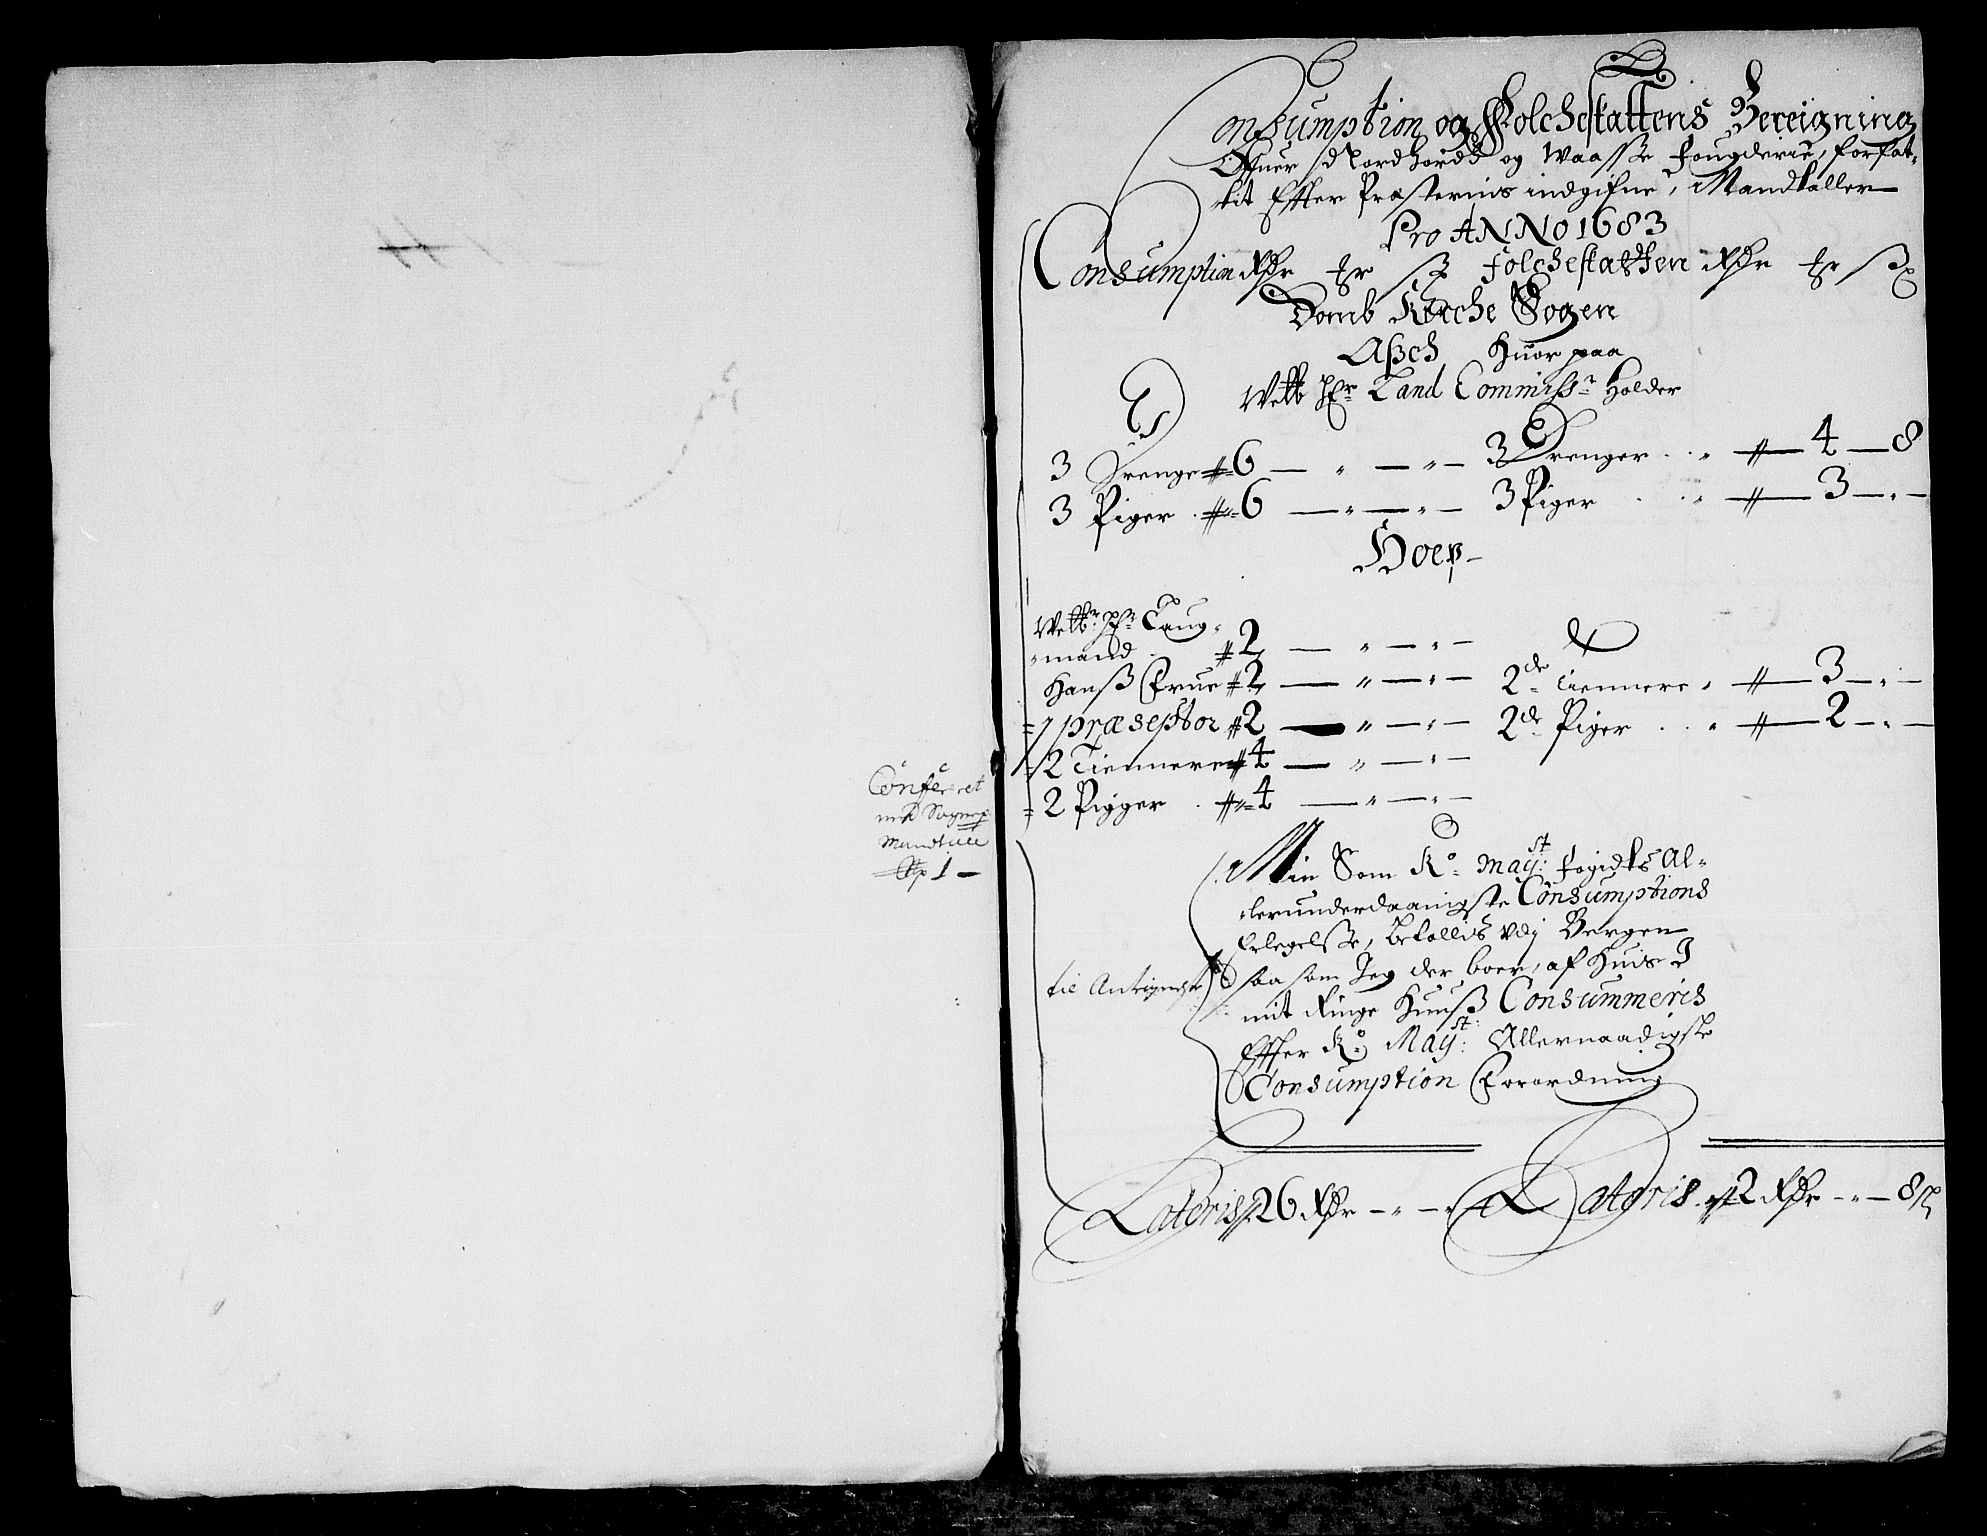 Consumption og Folcheskattens Bereigning
Offuer Nordhord og Waasße fougderie, forfat-
tit Effter Præsternis indgifne Mandtaller
Pro ANNO 1683
Consumption Rdr Ort ß Folcheskatten Rdr Ort ß
Domb Kirche Sogen
Aßch Huor paa
Welb Hr Land Commiss: holder
3 Drenge 6 — " — " — 3 Drenger . . " 4 — 8
3 Piger . 6 — " — " — 3 Piger . . " 3 — " —
Hoep
Welb: Hr: Laug-
mand 2 — " — " —
Hanß Frue 2 — " — " — 2de Tiennere " 3 — " —
1 præseptor 2 — " — " — 2de Piger . . " 2 — " —
2 Tiennere 4 — " — " —
2 Pigger . 4 — " — " —
Confereret
med Sogne
Mandtall
1 —
Min Som Ko: May: st fogidts Al-
lerunderdaanigste Consumptions
Erlegelsße, Betallis udj Bergen
til Antignelse
saa som Jeg der boer, af huis I
mit Ringe Huuß Consummeris
Effter Ko: May: st Allernaadigste
Consumption Forordning
Lateris 26 Rdr — " — " Lateris 12 Rdr — " — 8 ß